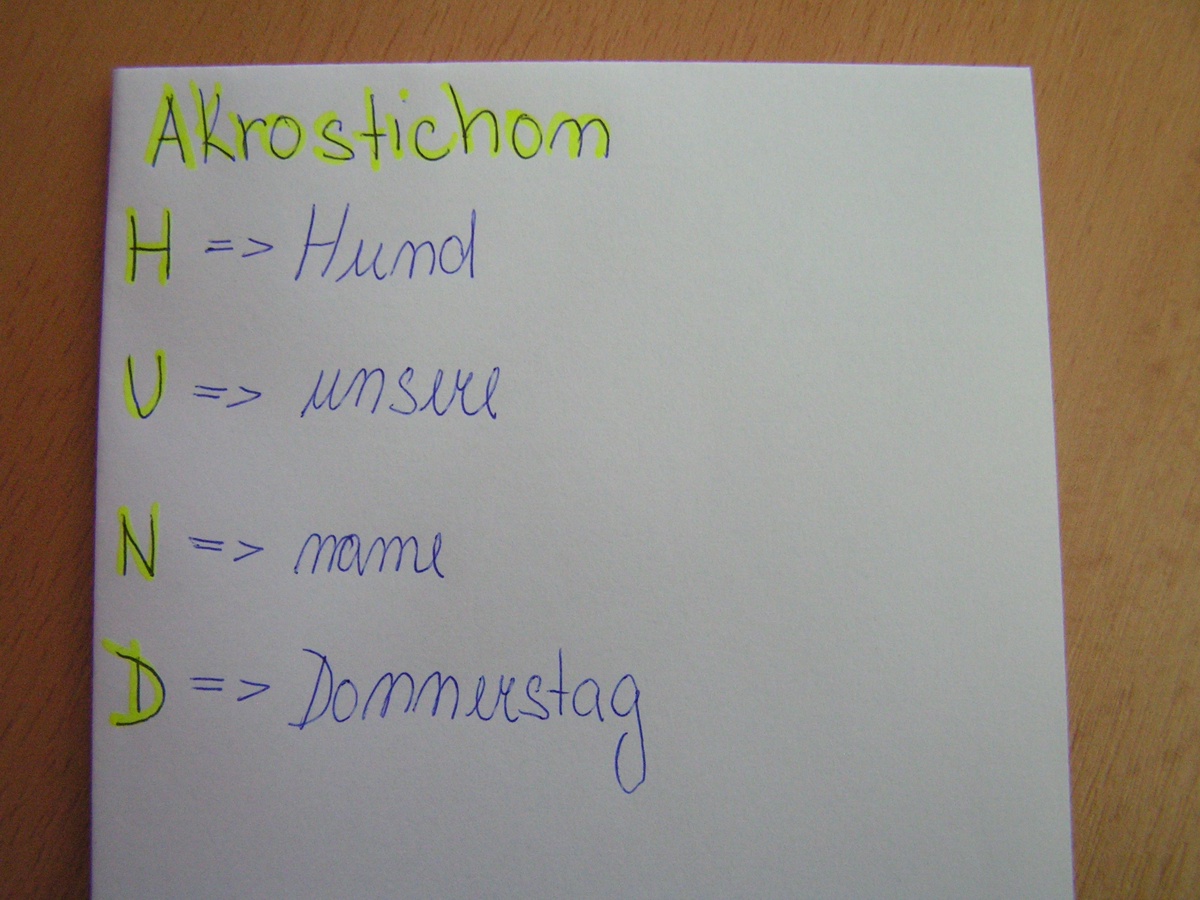 Akrostichon
H => Hund
U => unsere
N => name
D => Donnerstag